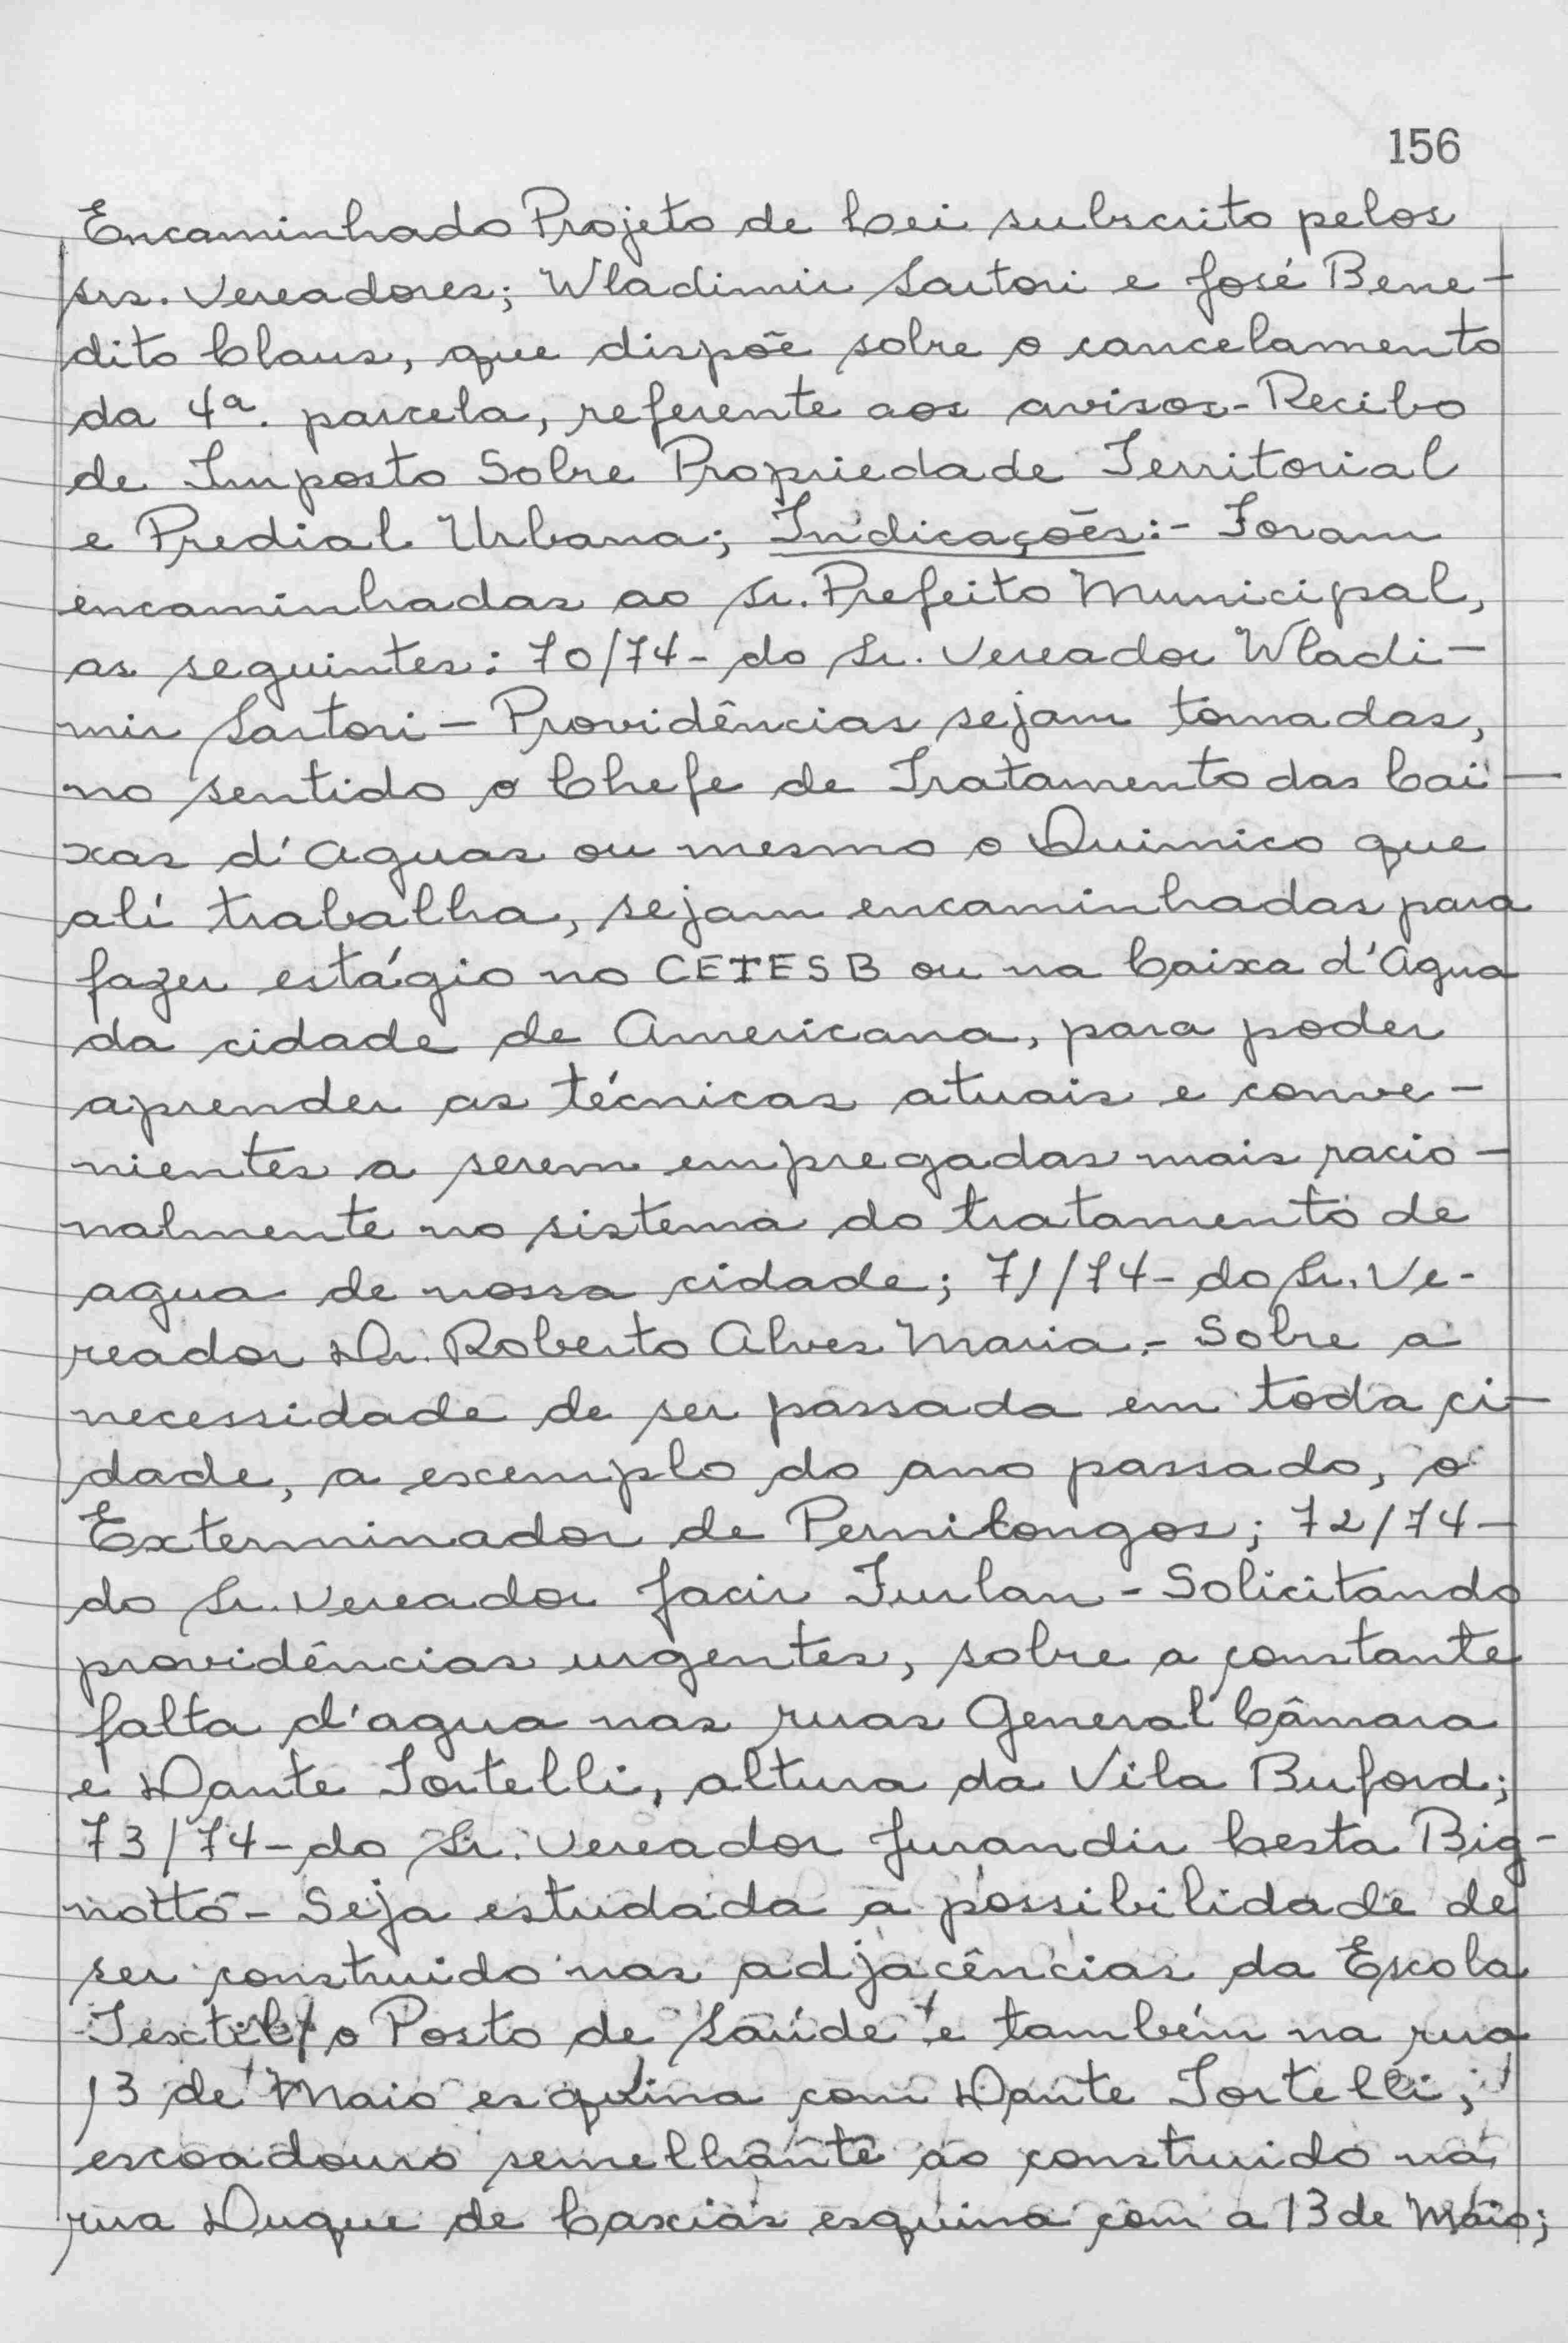 156
Encaminhado Projeto de Lei subscrito pelos
srs. Vereadores; Wladimir Sartori e José Bene-
dito Claus, que dispõe sobre o cancelamento
da 4ª. parcela, referente aos avisos-Recibo
de Imposto Sobre Propriedade Territorial
e Predial Urbana; Indicações:- Foram
encaminhadas ao Sr. Prefeito Municipal,
as seguintes: 70/74- do Sr. Vereador Wladi-
mir Sartori - Providências sejam tomadas,
no sentido o Chefe de Tratamento das Cai-
xas d'Aguas ou mesmo o Quimico que
alí trabalha, sejam encaminhadas para
fazer estágio no CETESB ou na Caixa d'Agua
da cidade de Americana, para poder
aprender as técnicas atuais e conve-
nientes a serem empregadas mais racio-
nalmente no sistema do tratamento de
agua de nossa cidade; 71/74- do Sr. Ve-
reador Dr. Roberto Alves Maria.- Sobre a
necessidade de ser passada em toda ci-
dade, a exemplo do ano passado, o
Exterminador de Pernilongos; 72/74-
do Sr. Vereador Jacir Furlan - Solicitando
providências urgentes, sobre a constante
falta d'agua nas ruas General Câmara
e Dante Tortelli, altura da Vila Buford;
73/74- do Sr. Vereador Jurandir Cesta Big-
notto - Seja estudada a possibilidade de
ser construido nas adjacências da Escola
Textil, o Posto de Saúde e também na rua
13 de Maio esquina com Dante Tortelli,
escoadouro semelhante ao construido na
rua Duque de Caxias esquina com a 13 de Maio;